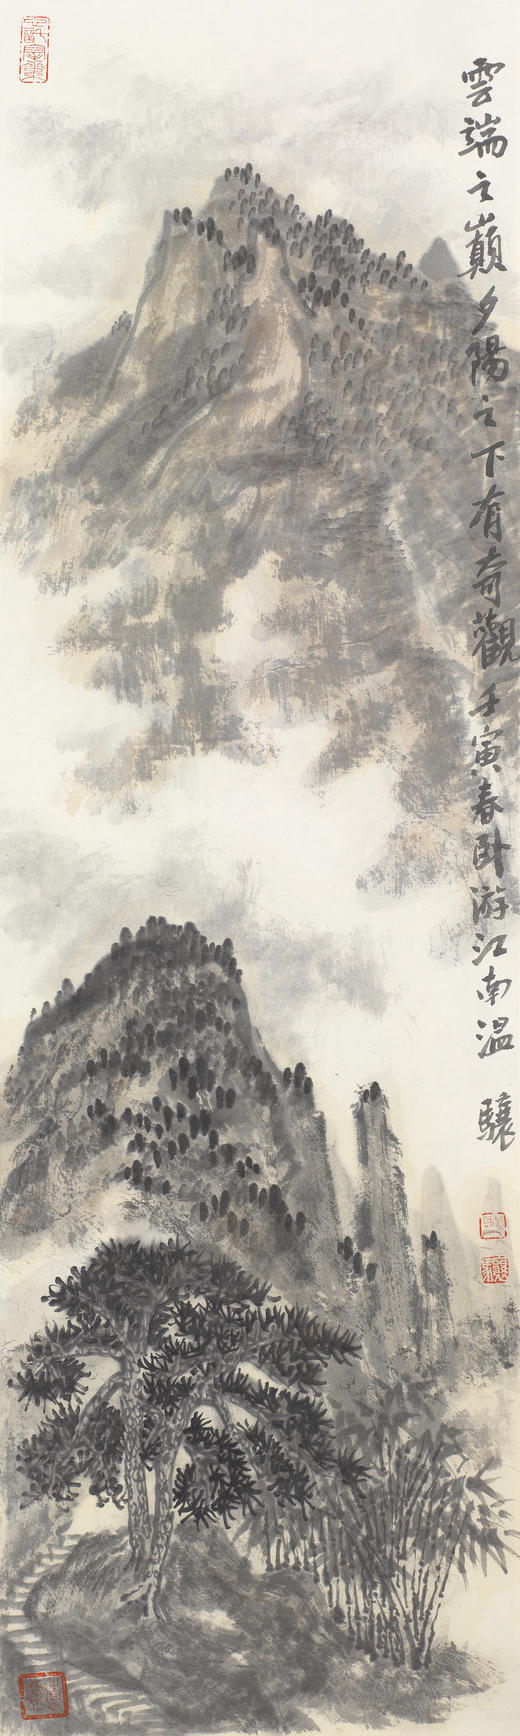 雲端之巔夕陽之下有奇觀壬寅春卧游江南温驤